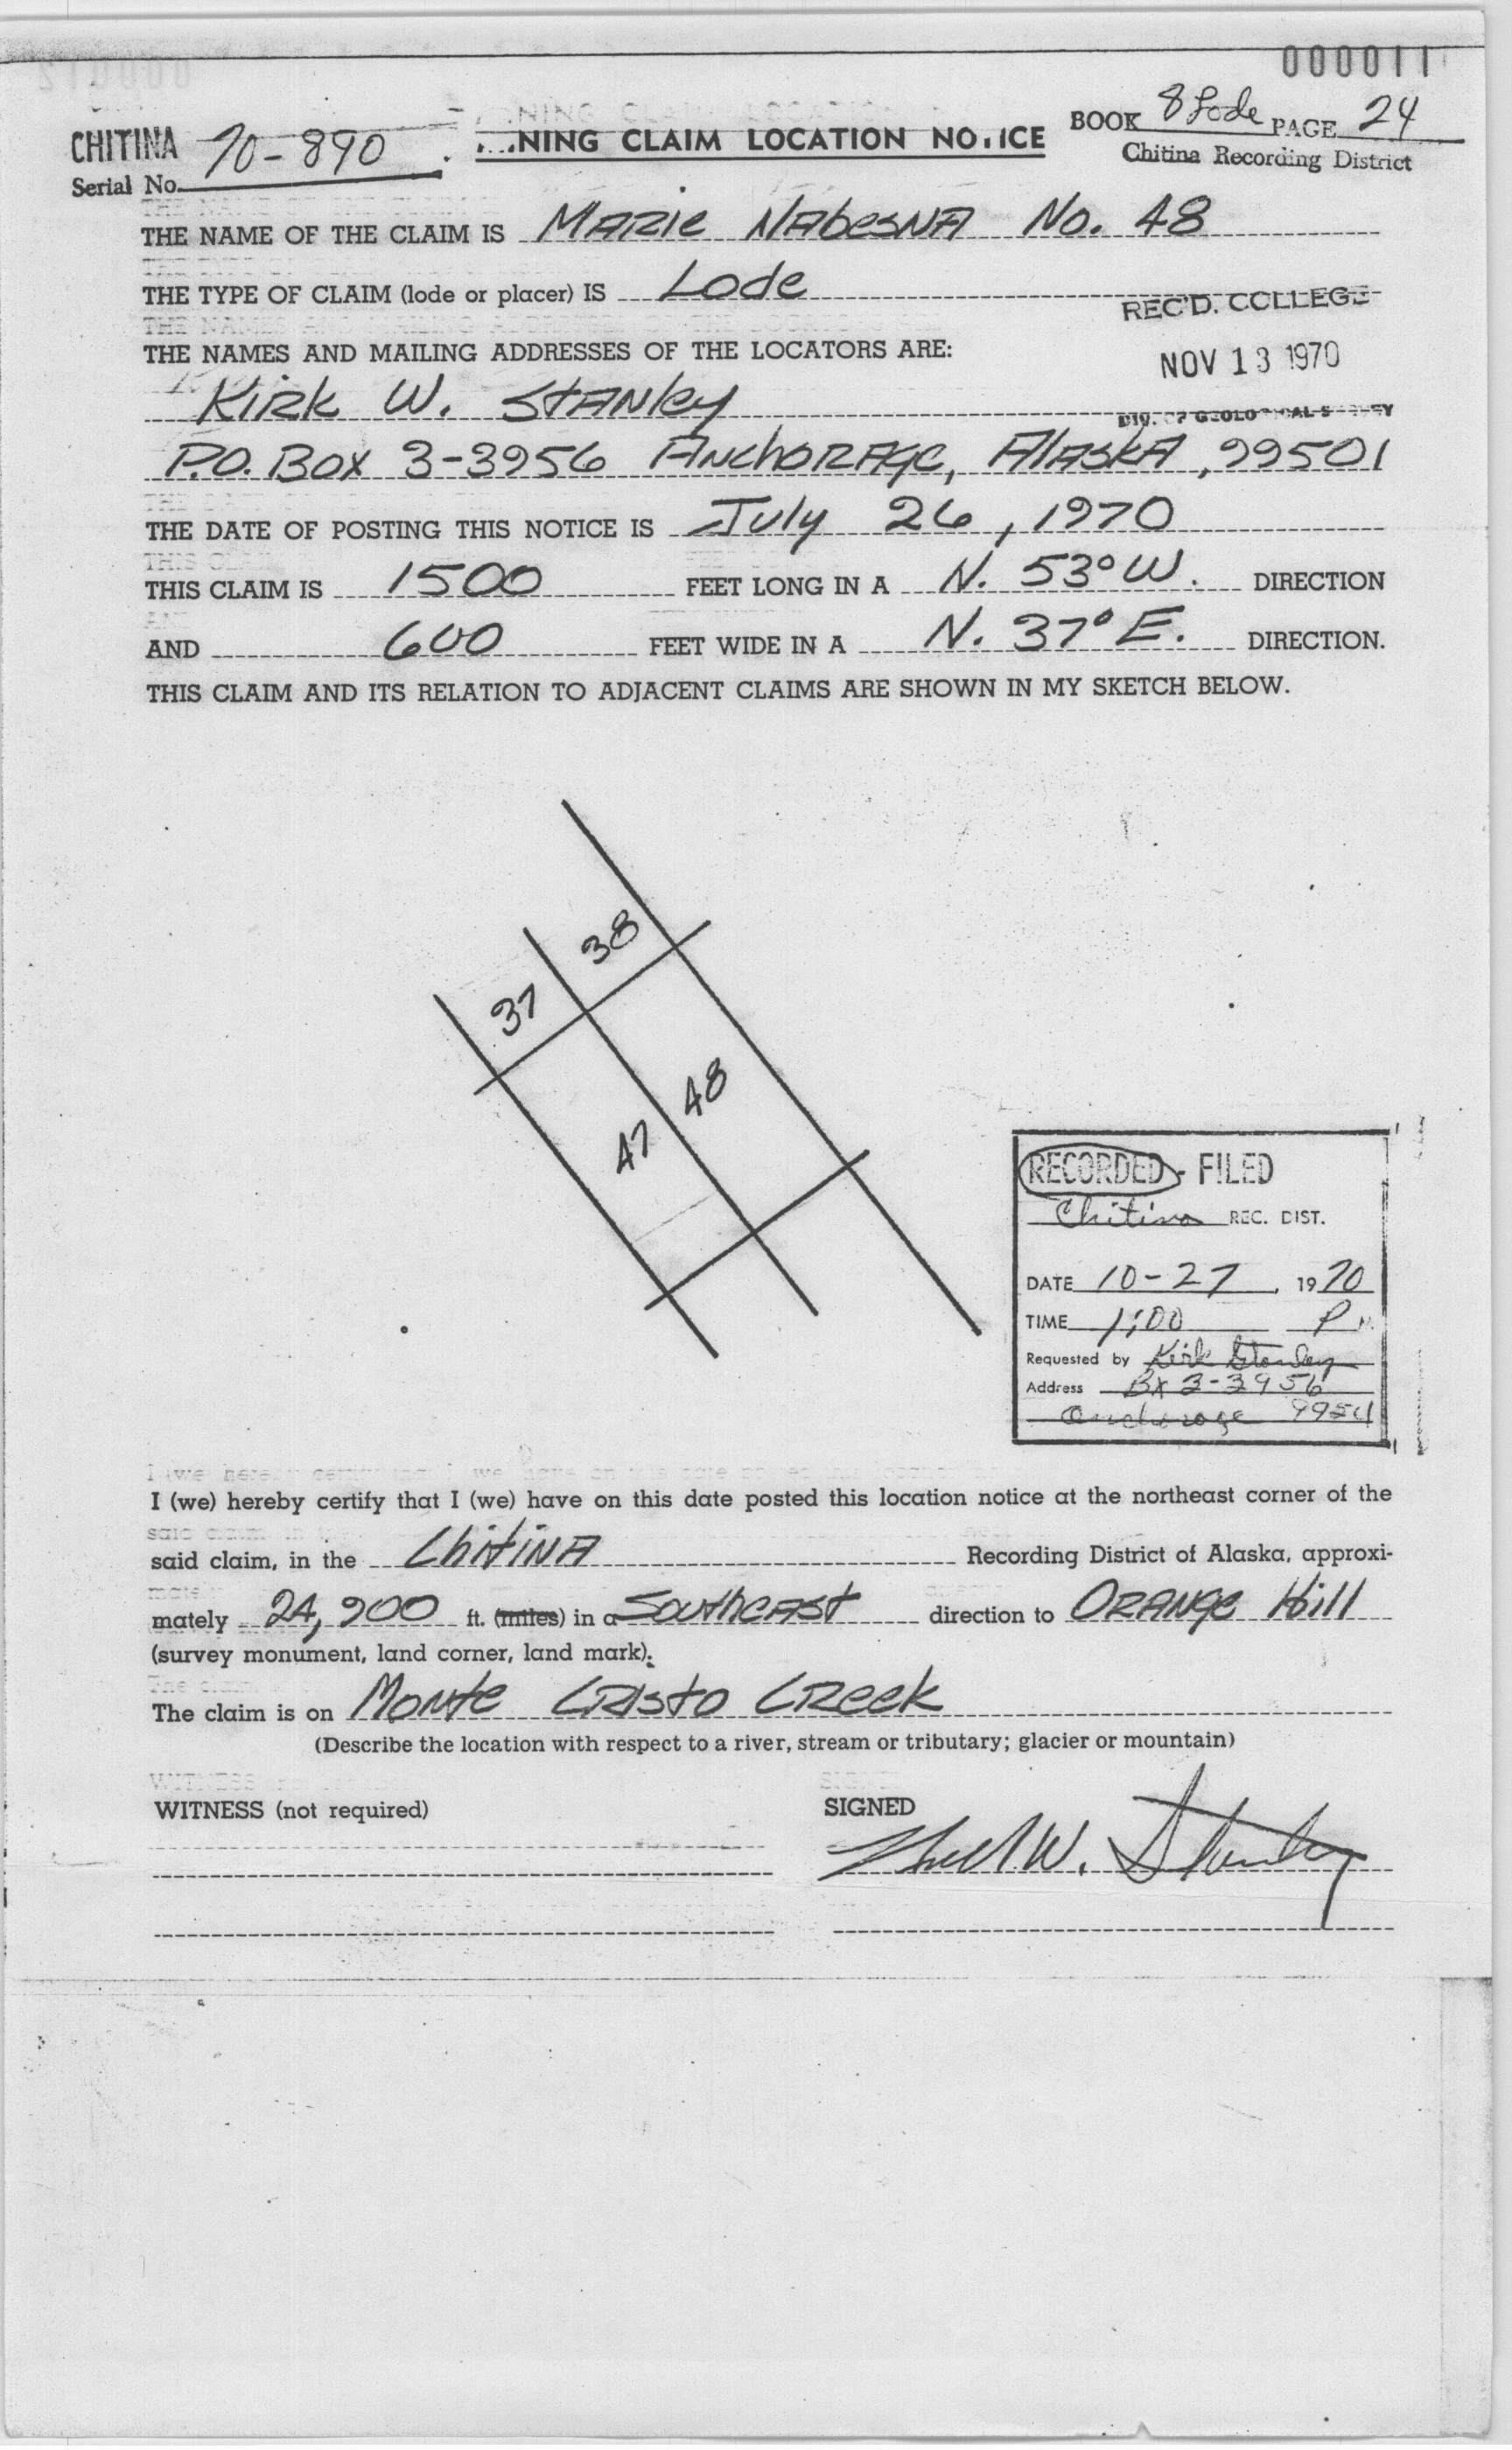 000011
CHITINA
Serial No. 70-890
NING CLAIM LOCATION NOTICE
BOOK 8 Lode PAGE 24
Chitina Recording District
THE NAME OF THE CLAIM IS MARIE NAbesNA No. 48
THE TYPE OF CLAIM (lode or placer) IS Lode
REC'D. COLLEGE
THE NAMES AND MAILING ADDRESSES OF THE LOCATORS ARE:
NOV 13 1970
KIRK W. STANley
DIV. OF GEOLOGICAL SURVEY
P.O. Box 3-3956 ANchORAge, AlASkA, 99501
THE DATE OF POSTING THIS NOTICE IS July 26, 1970
THIS CLAIM IS 1500 FEET LONG IN A N. 53° W. DIRECTION
AND 600 FEET WIDE IN A N. 37° E. DIRECTION.
THIS CLAIM AND ITS RELATION TO ADJACENT CLAIMS ARE SHOWN IN MY SKETCH BELOW.
38
37
48
47
RECORDED - FILED
Chitina REC. DIST.
DATE 10-27, 1970
TIME 1:00 P M
Requested by Kirk Stanley
Address Bx 3-3956
Anchorage
I (we) hereby certify that I (we) have on this date posted this location notice at the northeast corner of the
said claim, in the ChitiNA Recording District of Alaska, approxi-
mately 24,900 ft. (miles) in a SoutheAst direction to ORANge Hill
(survey monument, land corner, land mark).
The claim is on MoNte CRIsto CReek
(Describe the location with respect to a river, stream or tributary; glacier or mountain)
WITNESS (not required)
SIGNED
W. Stanley